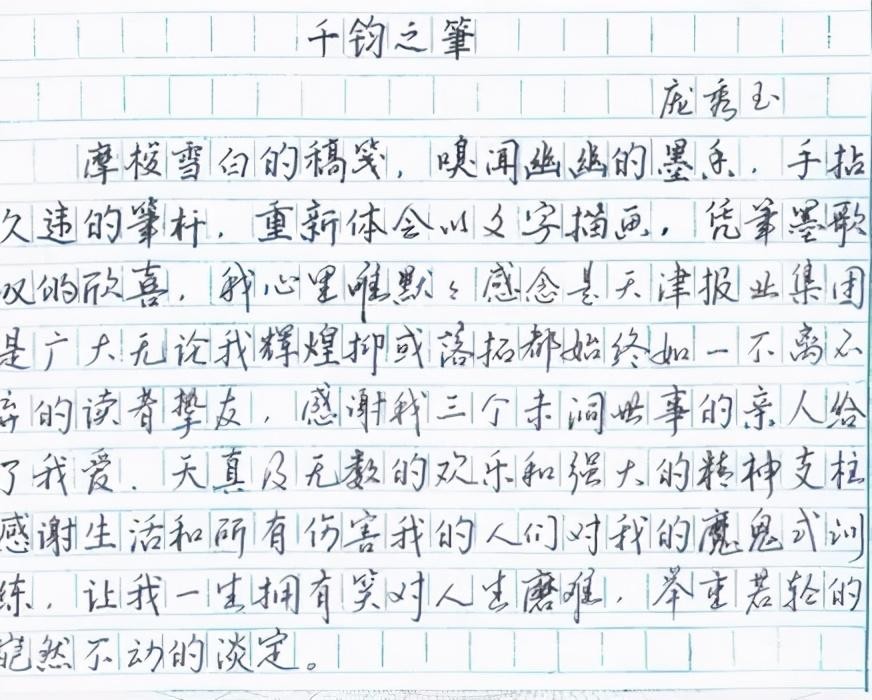 千钧之筆
庞秀玉
摩梭雪白的稿笺，嗅闻幽幽的墨香，手拈
久违的筆杆，重新体会以文字描画，凭筆墨歌
叹的欣喜，我心里唯默々感念是天津报业集团
是广大无论我辉煌抑或落拓都始终如一不离不
弃的读者挚友，感谢我三个未洞世事的亲人给
了我爱、天真及无数的欢乐和强大的精神支柱
感谢生活和所有伤害我的人们对我的魔鬼式训
练，让我一生拥有笑对人生磨难，举重若轻的
岿然不动的淡定。